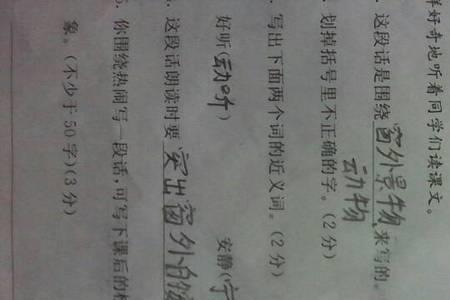 样好奇地听着同学们读课文。
. 这段话是围绕窗外景物来写的。
动物
. 划掉括号里不正确的字。(2分)
. 写出下面两个词的近义词。(2分)
好听(动听) 安静(宁
. 这段话朗读时要突出窗外的
5. 你围绕热闹写一段话,可写下课后的
象。(不少于50字)(3分)